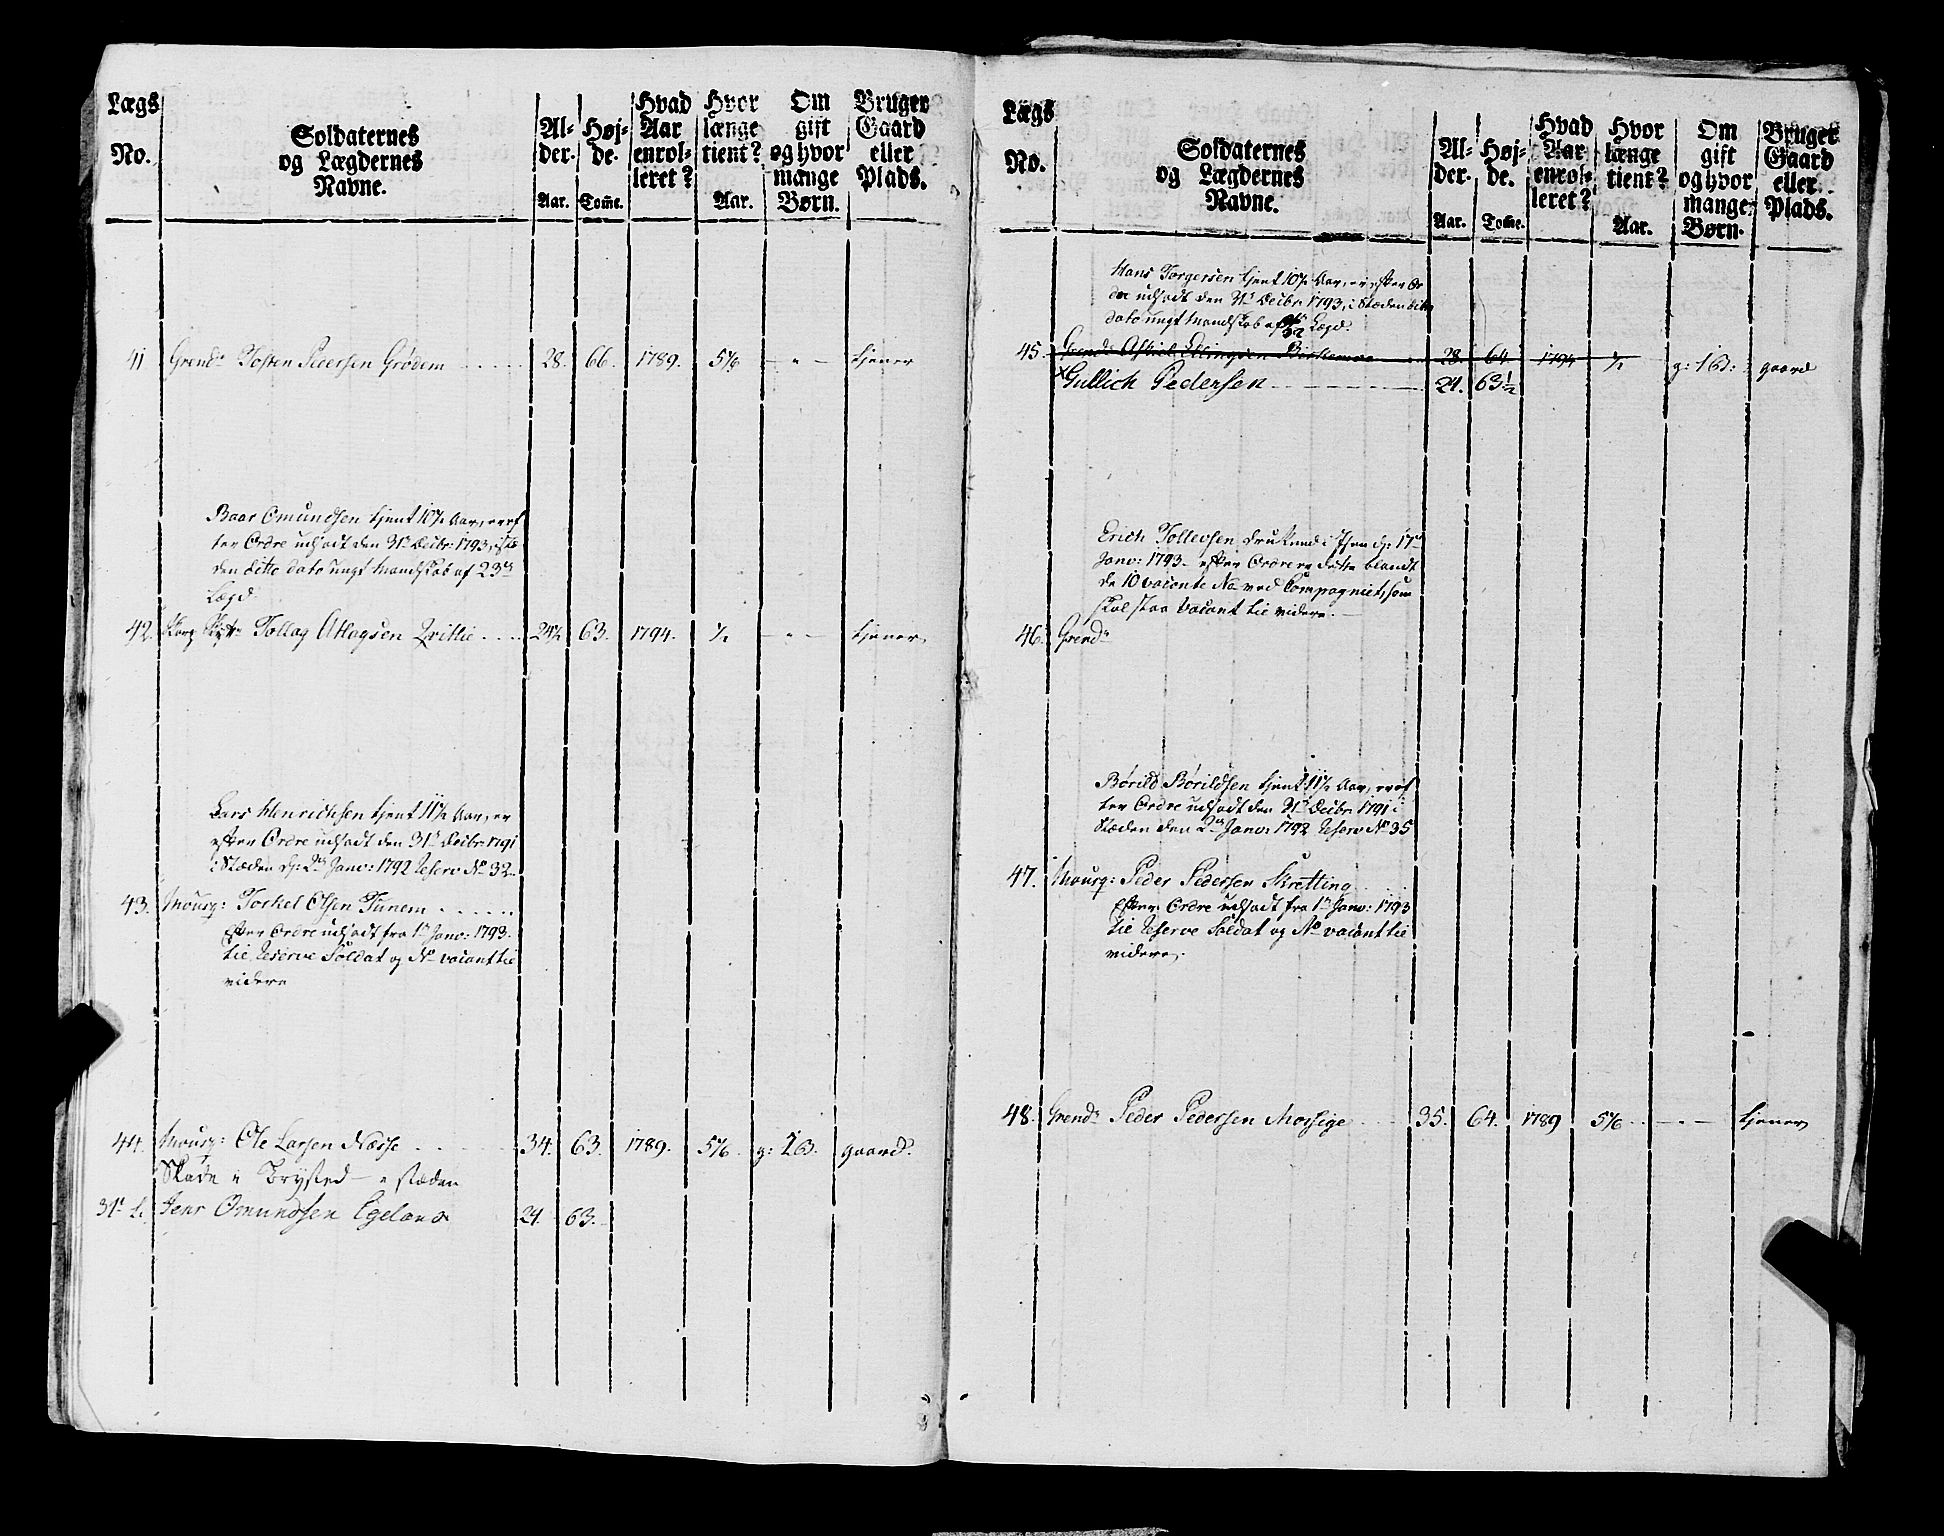 Lægs No.
Soldaternes og Lægdernes Navne.
Al-der. Aar.
Høj-de. Tom̄e.
Hvad Aar enrol-leret?
Hvor længe tient? Aar.
Om gift og hvor mange Børn.
Bruger Gaard eller Plads.
41 Grend: Tosten Pedersen Grødem 28. 66. 1789. 5 4/6 - " - tjener
Baar Omundsen tjent 10 1/2 Aar, er ef
ter Ordre udsadt den 31t Decbr: 1793, i stæ
den ditto dato ungt Mandskab af 23de
Lægd.
42. Tollag Atlagsen 24 1/2 63. 1794. 1/2 - " - tjener
Lars Henrichsen tjent 11 1/2 Aar, er
efter Ordre udsadt den 31t Decbr: 1791
i Stæden d: 2den Janv: 1792 Reserv No 32.
43. Mousq: Torkel Olsen Tunem
Efter Ordre udsadt fra 1te Janv: 1793.
til Reserve Soldat og No vacant til
videre
44. Mousq: Ole Larsen Næsse 34. 63. 1789. 5 4/6 g: 2 B. gaard.
Skade i Brysted - i stæden
31t L. Jens Omundsen Egeland 24. 63.
Lægs No.
Soldaternes og Lægdernes Navne.
Al-der. Aar.
Høj-de. Tom̄e.
Hvad Aar enrol-leret?
Hvor længe tient? Aar.
Om gift og hvor mange Børn.
Bruger Gaard eller Plads.
Hans Torgersen tjent 10 1/2 Aar, er efter Or
dre udsadt den 31t Decbr: 1793, i Stæden ditto
dato ungt Mandskab af Lægd.
45. Grend: Ellingsen 28. 64. 1794 1/2 g: 1 B: gaard
Gullich Pedersen 24. 63 1/2
Erich Tollevsen druknede i d: 17de
Janv: 1793. efter Ordre er dette blandt
de 10 vacante No ved Compagniet, som
skal staa vacant til videre.
46. Grend:
Børild Børildsen tjent 11 1/2 Aar, er ef
ter Ordre udsadt den 31t Decbr: 1791 i
Stæden den 2den Janv: 1792 Reserv No 35
47. Mousq: Peder Pedersen Skretting
Efter Ordre udsadt fra 1te Janv: 1793
til Reserve Soldat og No vacant til
videre.
48. Grend: Peder Pedersen Mossige 35. 64. 1789 5 4/6 - - - tjener